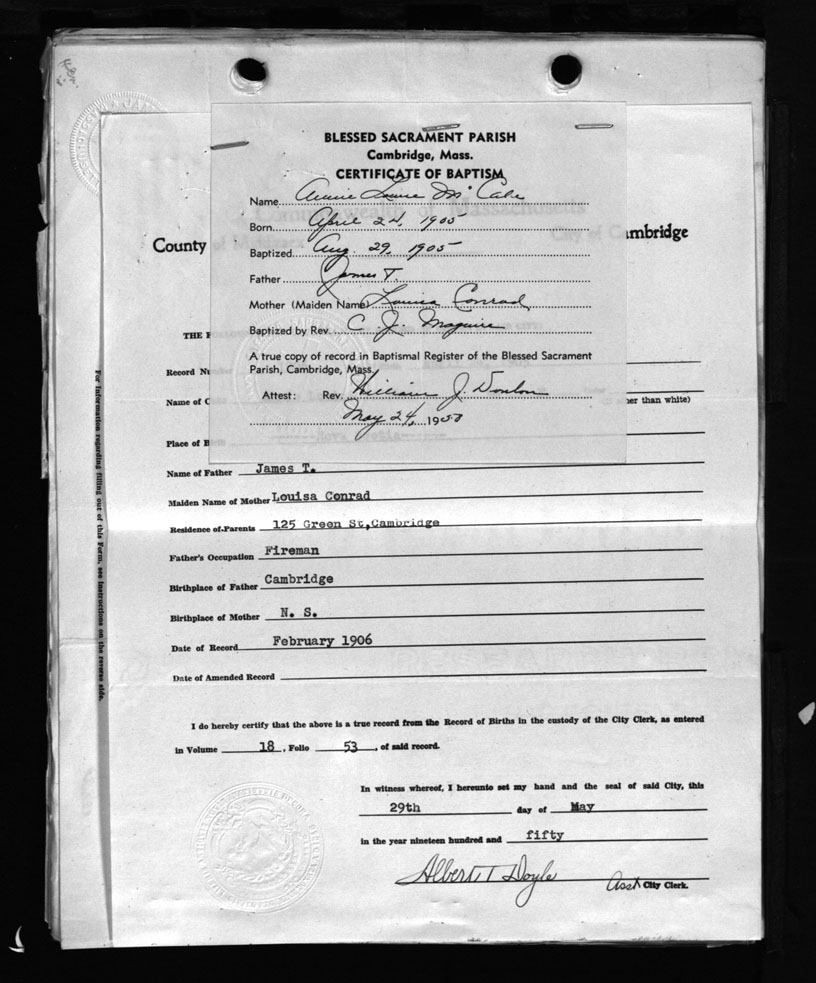 BLESSED SACRAMENT PARISH
Cambridge, Mass.
CERTIFICATE OF BAPTISM
Name Annie Louise McCabe
Born April 24, 1905
Baptized Aug. 29, 1905
Father James T.
Mother (Maiden Name) Louisa Conrad
Baptized by Rev. C. J. Maguire
A true copy of record in Baptismal Register of the Blessed Sacrament
Parish, Cambridge, Mass.
Attest: Rev. William J. Donlon
May 24, 1950
Commonwealth of Massachusetts
County of Middlesex City of Cambridge
THE
Record
Name of (
her than white)
Place of B Nova Scotia
Name of Father James T.
Maiden Name of Mother Louisa Conrad
Residence of Parents 125 Green St,Cambridge
Father's Occupation Fireman
Birthplace of Father Cambridge
Birthplace of Mother N. S.
Date of Record February 1906
Date of Amended Record
I do hereby certify that the above is a true record from the Record of Births in the custody of the City Clerk, as entered
in Volume 18, Folio 53, of said record.
In witness whereof, I hereunto set my hand and the seal of said City, this
29th day of May
in the year nineteen hundred and fifty
Albert T Doyle Asst City Clerk.
For information regarding filling out of this Form, see instructions on the reverse side.